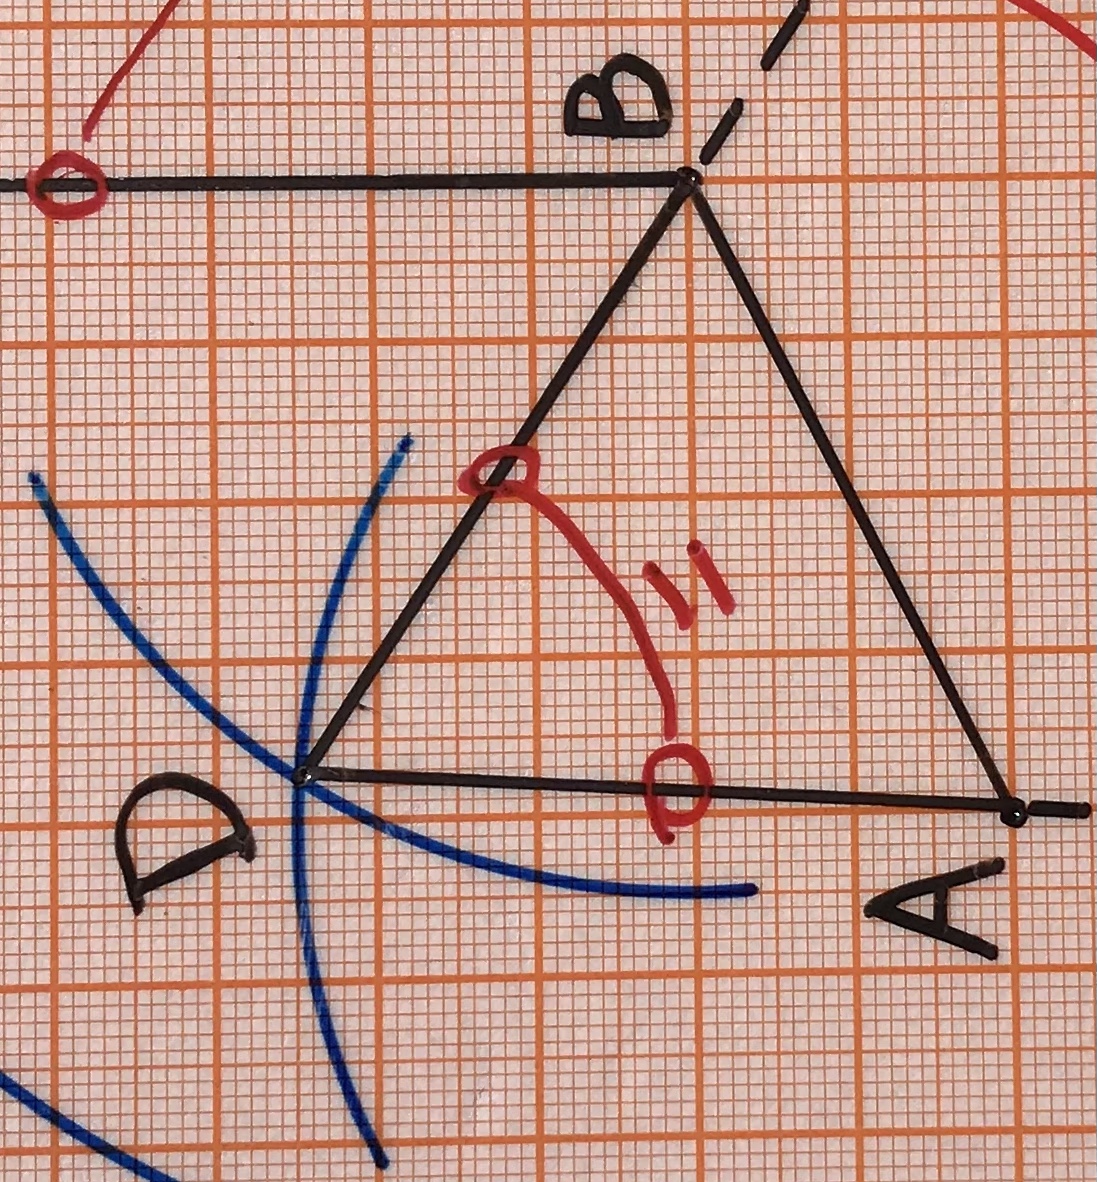 D
B
A